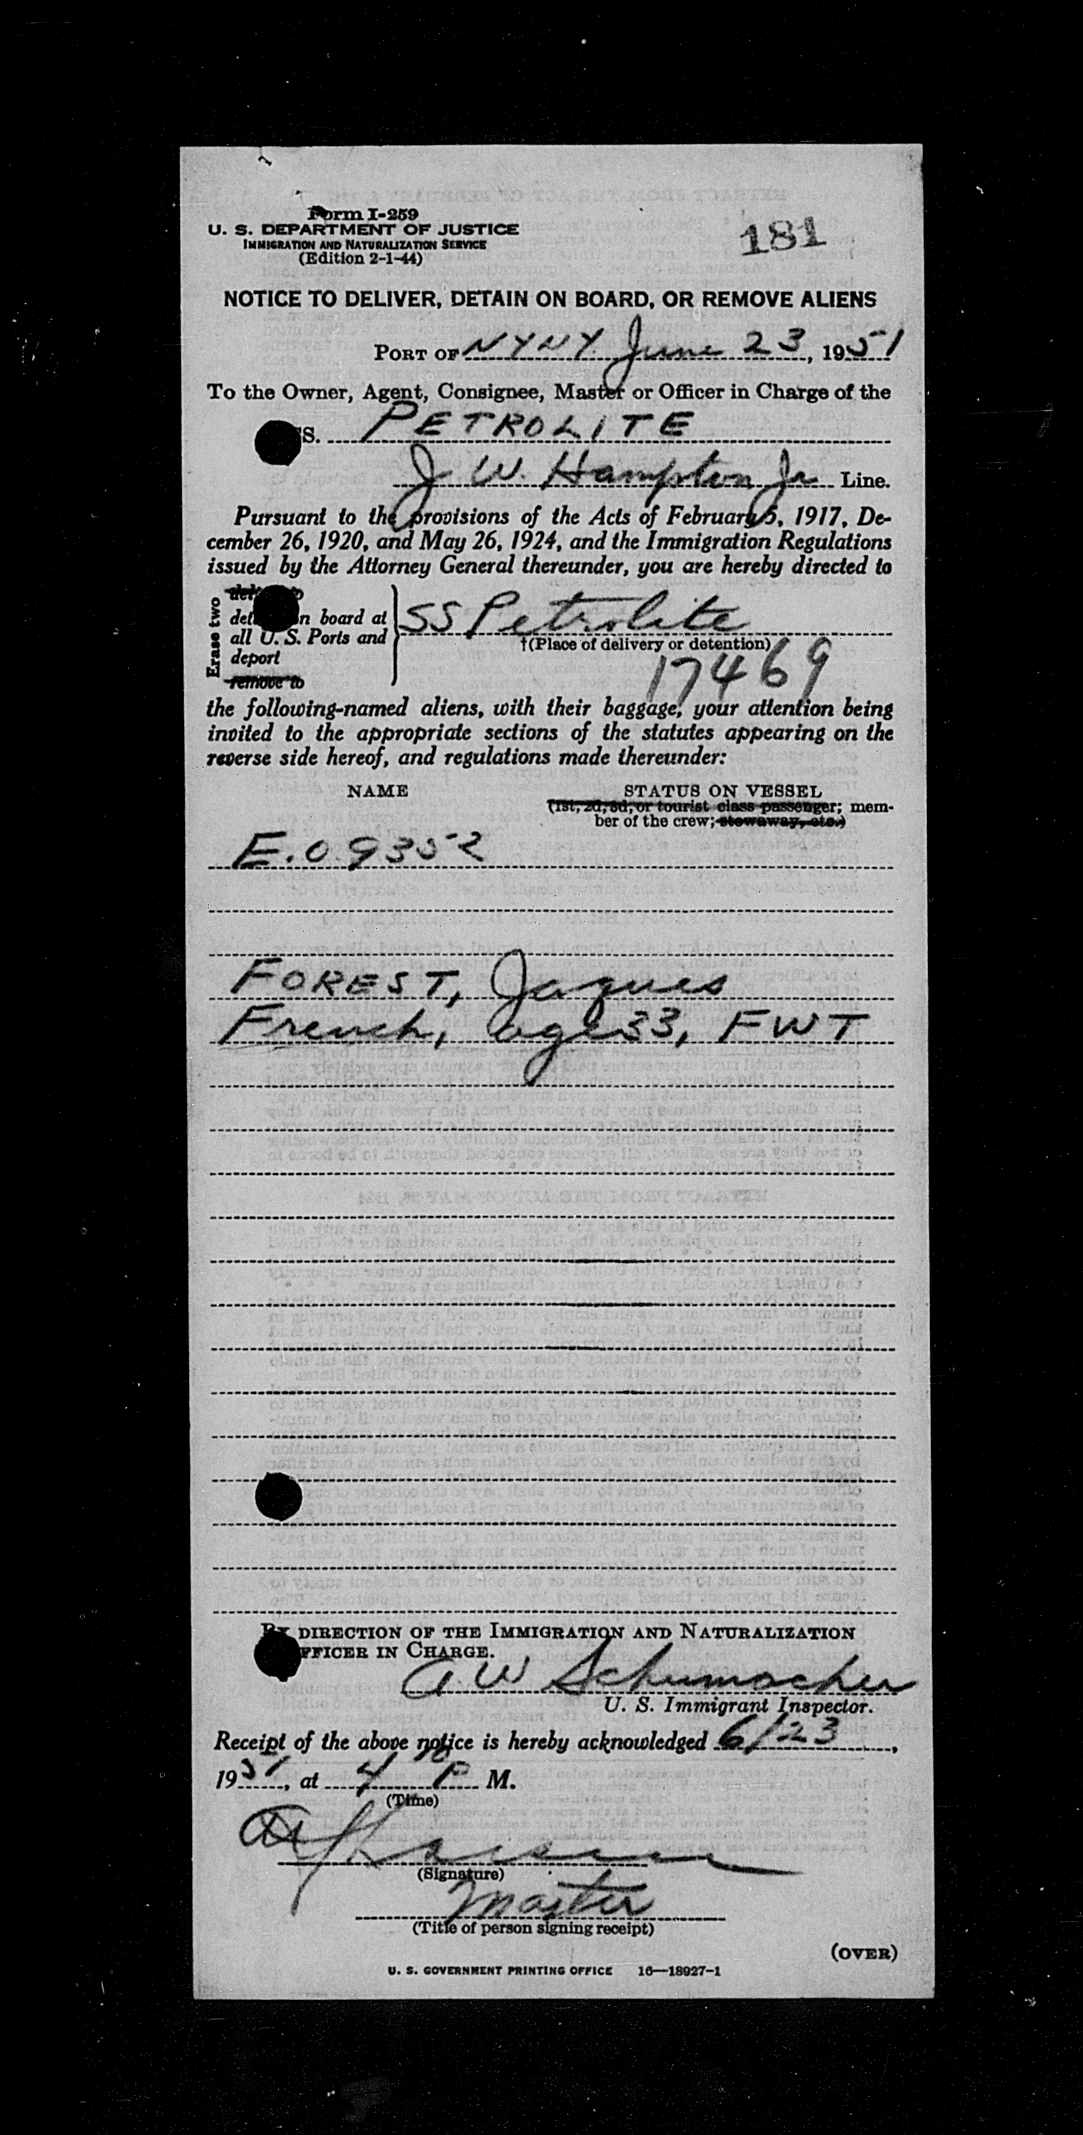 Form I-259
U. S. DEPARTMENT OF JUSTICE
IMMIGRATION AND NATURALIZATION SERVICE
(Edition 2-1-44)
181
NOTICE TO DELIVER, DETAIN ON BOARD, OR REMOVE ALIENS
PORT OF NYNY. June 23, 1951
To the Owner, Agent, Consignee, Master or Officer in Charge of the
SS. PETROLITE
J. W. Hampton Jr Line.
Pursuant to the provisions of the Acts of February 5, 1917, De-
cember 26, 1920, and May 26, 1924, and the Immigration Regulations
issued by the Attorney General thereunder, you are hereby directed to
Erase two
board at
all U. S. Ports and
deport
remove to
SS Petrolite
†(Place of delivery or detention)
17469
the following-named aliens, with their baggage, your attention being
invited to the appropriate sections of the statutes appearing on the
reverse side hereof, and regulations made thereunder:
NAME
STATUS ON VESSEL
(1st, 2d, 3d, or tourist class passenger; mem-
ber of the crew; stowaway, etc.)
E.O. 9352
FOREST, Jaques
French, age 33, FWT
BY DIRECTION OF THE IMMIGRATION AND NATURALIZATION
OFFICER IN CHARGE.
A W Schumacher
U. S. Immigrant Inspector.
Receipt of the above notice is hereby acknowledged 6/23,
1951, at 4 P M.
(Time)
(Signature)
Master
(Title of person signing receipt)
(OVER)
U. S. GOVERNMENT PRINTING OFFICE 16—18927-1